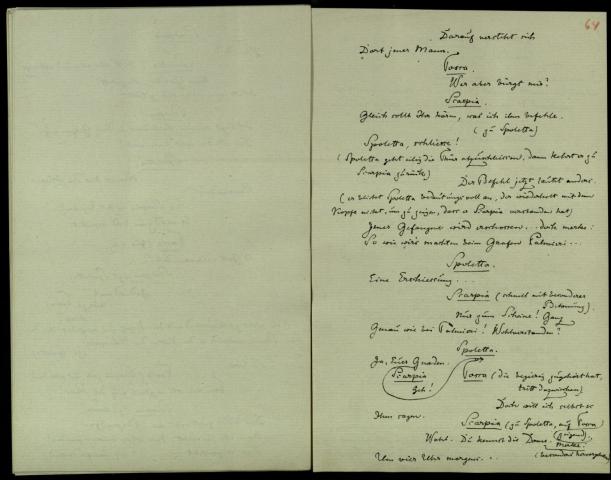 64
Darauf versteht sich
Dort jener Mann.
Tosca.
Wer aber bürgt mir?
Scarpia.
Gleich sollt Ihr hören, was ich ihm befehle.
(zu Spoletta)
Spoletta, schliesse!
(Spoletta geht eilig die Thür abzuschliessen, dann kehrt er zu
Scarpia zurück)
Der Befehl jetzt lautet anders.
(er blickt Spoletta bedeutungsvoll an, der wiederholt mit dem
Kopfe nickt, um zu zeigen, dass er Scarpia verstanden hat)
Jener Gefangne wird erschossen... doch merke:
So wie wir's machten beim Grafen Palmieri...
Spoletta.
Eine Erschiessung...
Scarpia (schnell mit besonderer
Betonung).
Nur zum Scheine! Ganz
Genau wie bei Palmieri! Wohlverstanden?
Spoletta.
Ja, Euer Gnaden.
Scarpia Tosca (die begierig zugehört hat,
Geh! tritt dazwischen)
Doch will ich selbst es
Ihm sagen.
Scarpia (zu Spoletta, auf Tosca
zeigend)
Wohl. Du kennst die Dame. Merke:
Um vier Uhr morgens... (besonders hervorhebend)